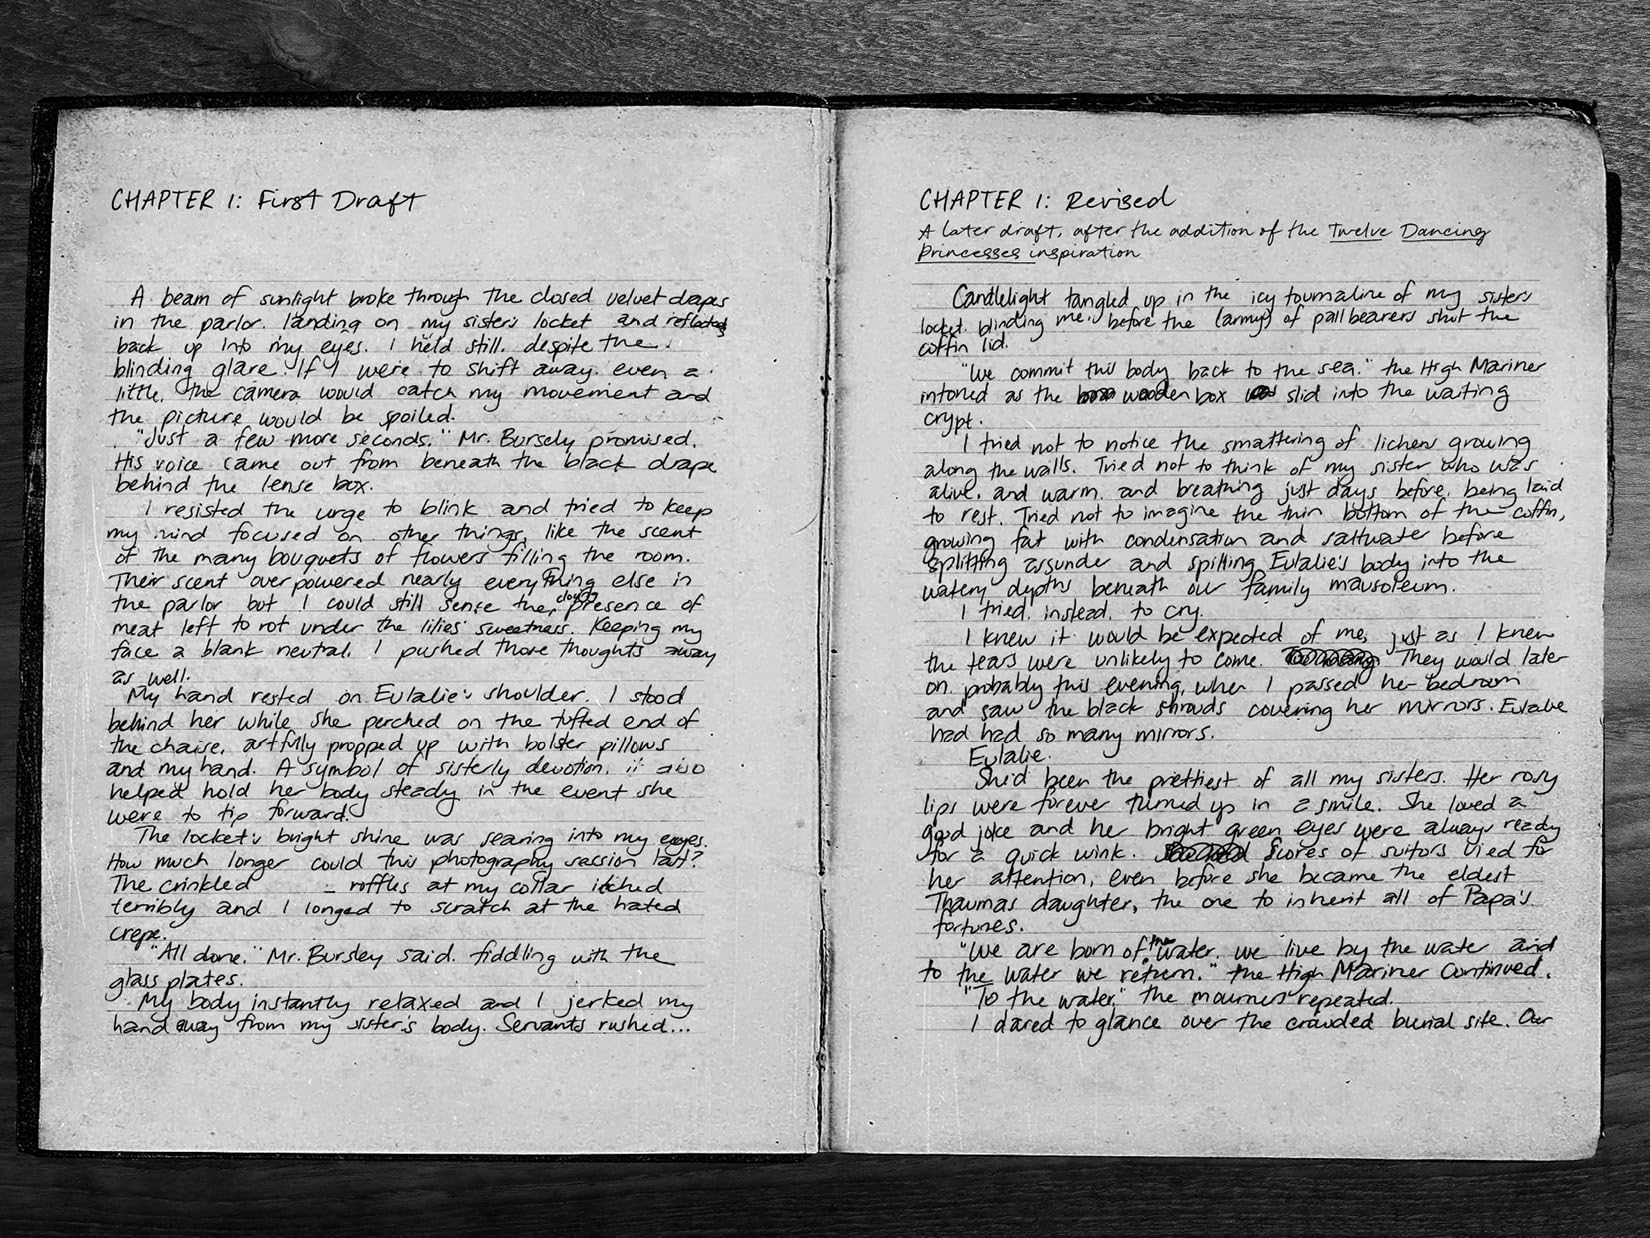 CHAPTER 1: First Draft
A beam of sunlight broke through the closed velvet drapes
in the parlor. landing on my sister's locket and reflected
back up into my eyes. I held still. despite the
blinding glare. If I were to shift away. even a
little, the camera would catch my movement and
the picture would be spoiled.
"Just a few more seconds." Mr. Bursely promised.
His voice came out from beneath the black drape
behind the lense box.
I resisted the urge to blink and tried to keep
my mind focused on other things, like the scent
of the many bouquets of flowers filling the room.
Their scent overpowered nearly everything else in
the parlor but I could still sense the cloying presence of
meat left to rot under the lilies' sweetness. Keeping my
face a blank neutral, I pushed those thoughts away
as well.
My hand rested on Eulalie's shoulder. I stood
behind her while she perched on the tufted end of
the chaise, artfully propped up with bolster pillows
and my hand. A symbol of sisterly devotion, it also
helped hold her body steady in the event she
were to tip forward.
The locket's bright shine was searing into my eyes.
How much longer could this photography session last?
The crinkled ruffles at my collar itched
terribly and I longed to scratch at the hated
crepe.
"All done," Mr. Bursley said. fiddling with the
glass plates.
My body instantly relaxed and I jerked my
hand away from my sister's body. Servants rushed...
CHAPTER 1: Revised
A later draft, after the addition of the Twelve Dancing
Princesses inspiration
Candlelight tangled up in the icy tourmaline of my sister's
locket. blinding me, before the (army) of pallbearers shut the
coffin lid.
"We commit this body back to the sea." the High Mariner
intoned as the wooden box slid into the waiting
crypt.
I tried not to notice the smattering of lichens growing
along the walls. Tried not to think of my sister who was
alive, and warm, and breathing just days before, being laid
to rest. Tried not to imagine the thin bottom of the coffin,
growing fat with condensation and saltwater before
splitting assunder and spilling Eulalie's body into the
watery depths beneath our family mausoleum.
I tried, instead, to cry.
I knew it would be expected of me, just as I knew
the tears were unlikely to come. They would later
on, probably this evening, when I passed her bedroom
and saw the black shrouds covering her mirrors. Eulalie
had had so many mirrors.
Eulalie.
She'd been the prettiest of all my sisters. Her rosy
lips were forever turned up in a smile. She loved a
good joke and her bright green eyes were always ready
for a quick wink. Scores of suitors vied for
her attention, even before she became the eldest
Thaumas daughter, the one to inherit all of Papa's
fortunes.
"We are born of the water, we live by the water and
to the water we return." the High Mariner continued.
"To the water," the mourners repeated.
I dared to glance over the crowded burial site. Our